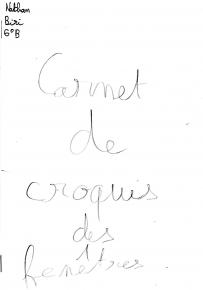 Nathan
Biri
6°B
Carnet
de
croquis
des
fenêtres